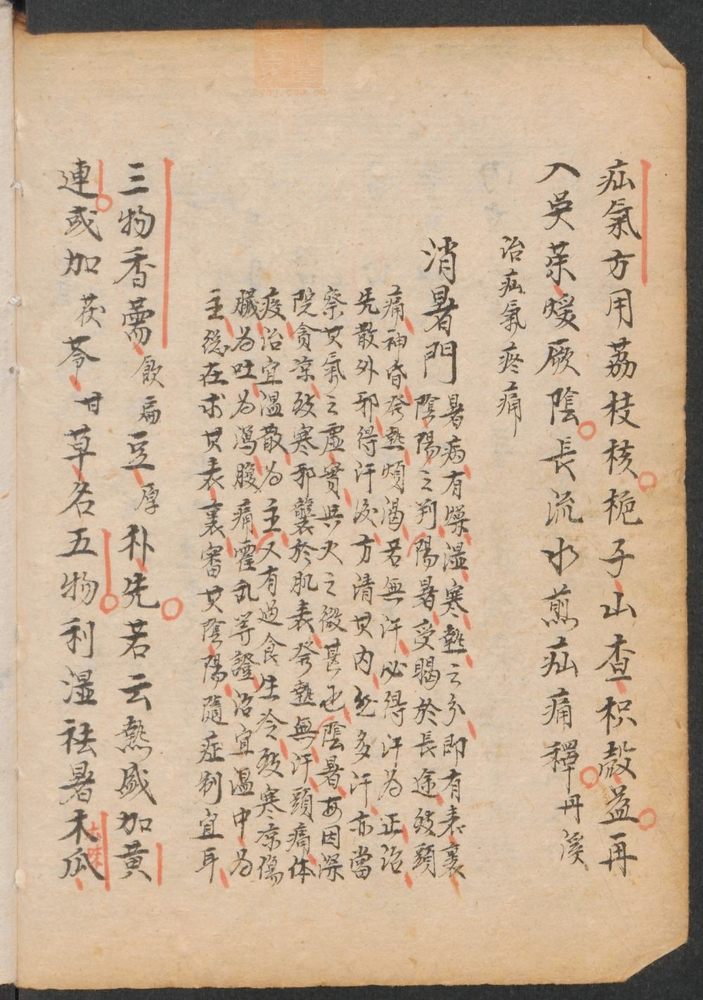 疝氣方用荔枝核梔子山查枳殼益再
入吳茱煖厥陰長流水煎疝痛釋丹溪
治疝氣疼痛
消暑門
暑病有燥湿寒熱之分即有表裏
陰陽之判陽暑受暍於長途致頭
痛神昏發熱煩渴若無汗必得汗為正治
先散外邪得汗後方清其内也多汗亦當
察其氣之虛實與火之微甚也陰暑再因深
院貪凉致寒邪襲於肌表發熱無汗頭痛体
疫治宜温散為主又有過食生冷致寒凉傷
臟為吐為瀉腹痛霍乱等證治宜温中為
主總在求其表裏審其陰陽隨症制宜耳
三物香薷飲扁豆厚朴先若云熱盛加黄
連或加茯苓甘草名五物利湿祛暑木瓜